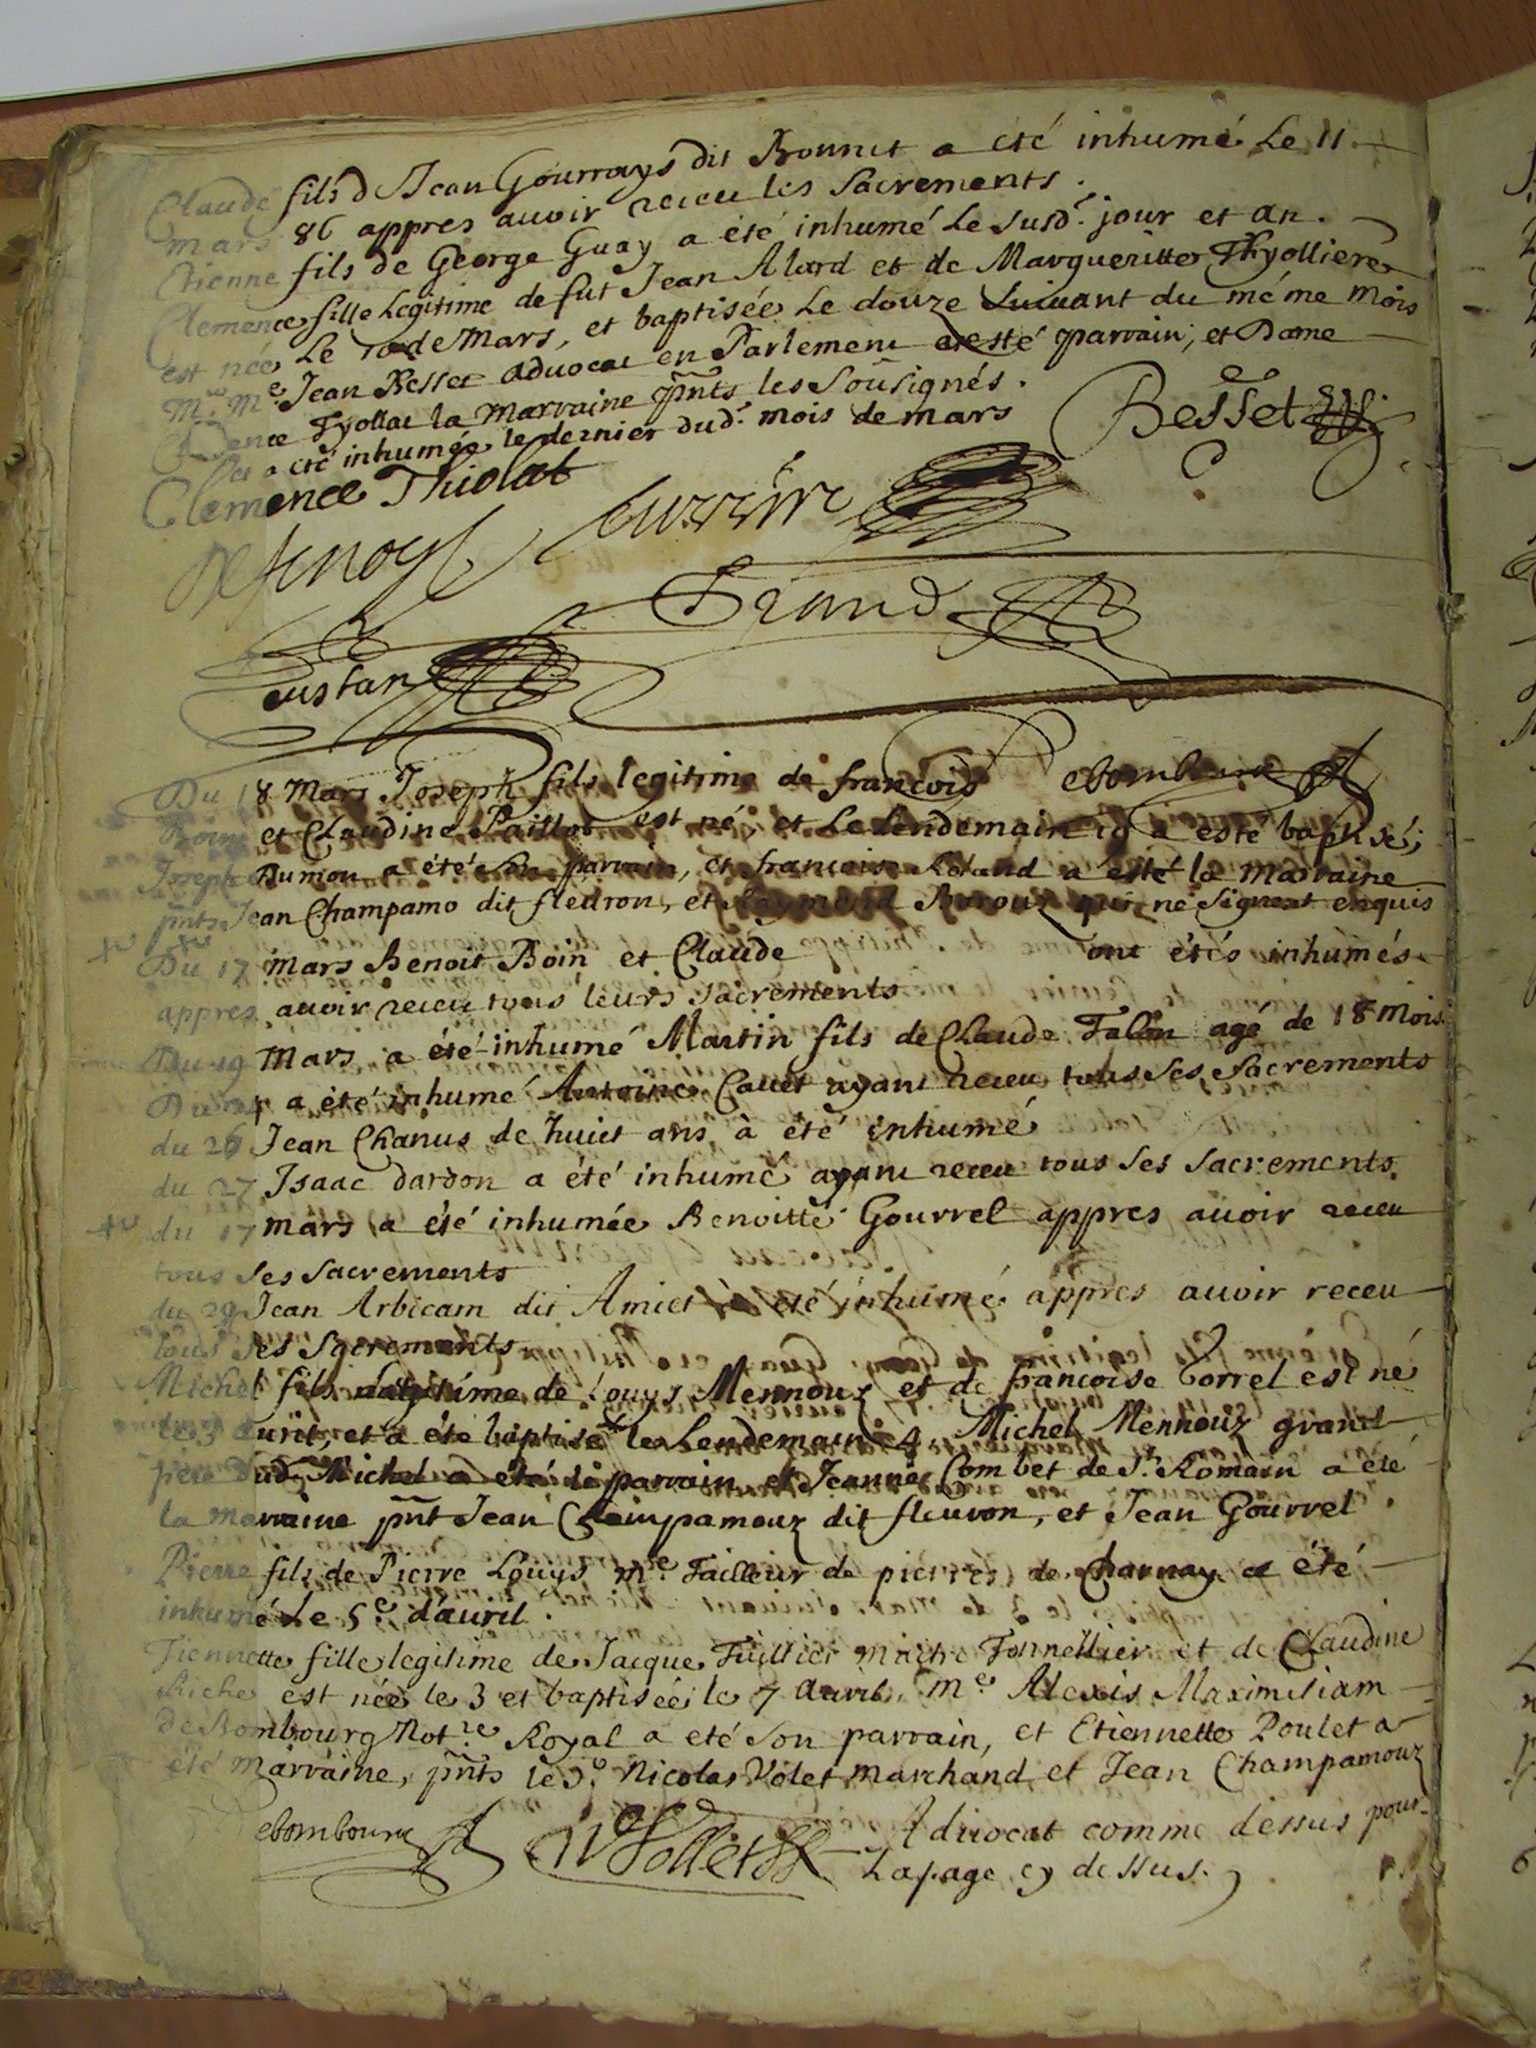 Claude fils d Jean Gourrays dit Bonnet a été inhumé Le 11
mars 86 appres auoir receu les Sacrements.
Etienne fils de George Guay a été inhumé Le susd.t jour et an.
Clemence fille Legitime de fut Jean Alard et de Margueritte Thyolliere
est née Le 10 de Mars, et baptisée Le douze Suiuant du méme Mois
Mre Me Jean Besset aduocat en Parlement a esté parrain, et Dame
Clemence Tyollat la marraine pñts les Sousignés.
et a été inhumée le dernier dud.t mois de mars
Besset
Clemence Thiolat
Eustan
Du 18 Mars Joseph fils legitime de francois
ebombourg
et Claudine Paillot est né, et Le Lendemain 19 a esté baptisé;
Joseph Dumon a été son parrain, et francoise Roland a esté la marraine
pñts Jean Champamo dit fleuron, et qui ne Signent enquis
Du 17 Mars Benoit Boin et Claude ont étés inhumés
appres auoir receu tous leurs Sacrements
Du 19 Mars a été inhumé Martin fils de Claude Talon agé de 18 Mois
Du 24 a été inhumé Antoine Cauet ayant receu tous Ses Sacrements
du 26 Jean Chanus de huict ans à été inhumé
du 27 Isaac dardon a été inhumé ayant receu tous Ses Sacrements.
du 17 mars a été inhumée Benoitte Gourrel appres auoir receu
tous Ses Sacrements
du 29 Jean Arbicam dit Amiet à été inhumé appres auoir receu
tous Ses Sacrements
Michel fils Legitime de Louys Mennouz et de francoise Torrel est né
le 3 auril, et a été baptisé le Lendemain 4. Michel Mennouz grand
pere dud.t Michel a été le parrain et Jeanne Combet de St. Romain a été
la marraine pñt Jean Champamouz dit fleuron, et Jean Gourrel.
Pierre fils de Pierre Louys Me. Tailleur de pierres de Charnay a été
inhumé Le 5.e d'auril.
Tiennette fille legitime de Jacque Tuillier Maitre Tonnellier et de Claudine
Riche est née le 3 et baptisée le 7 Auril, Me Alexis Maximiliam
de Bombourg Notre Royal a été Son parrain, et Etiennette Poulet a
été Marraine, pñts le Sr Nicolas Volet Marchand et Jean Champamouz
ebombourg
N Vollet
Aduocat comme dessus pour
La page cy dessus.